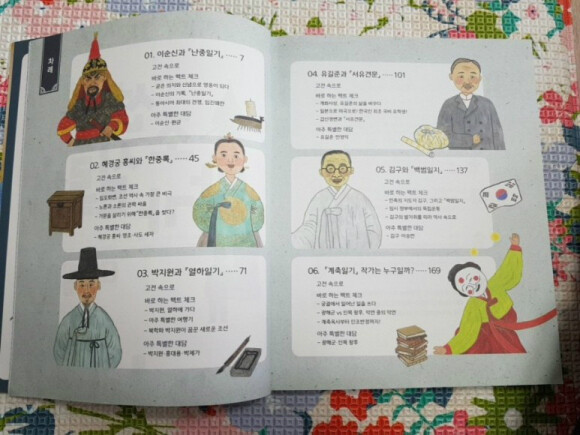 차례
01. 이순신과 『난중일기』 ····· 7
고전 속으로
바로 하는 팩트 체크
- 이순신의 기록, 『난중일기』
아주 특별한 대담
- 이순신·원균
02. 혜경궁 홍씨와 『한중록』 ····· 45
고전 속으로
바로 하는 팩트 체크
- 임오화변, 조선 역사 속 가장 큰 비극
- 노론과 소론의 권력 싸움
- 가문을 살리기 위해 『한중록』을 썼다?
아주 특별한 대담
- 혜경궁 홍씨·정조·사도 세자
03. 박지원과 『열하일기』 ····· 71
고전 속으로
바로 하는 팩트 체크
- 박지원, 열하에 가다
- 아주 특별한 여행기
- 북학파 박지원이 꿈꾼 새로운 조선
아주 특별한 대담
- 박지원·홍대용·박제가
04. 유길준과 『서유견문』 ····· 101
고전 속으로
바로 하는 팩트 체크
- 개화사상, 유길준의 삶을 바꾸다
- 갑신정변과 『서유견문』
아주 특별한 대담
- 유길준·민영익
05. 김구와 『백범일지』 ····· 137
고전 속으로
바로 하는 팩트 체크
- 민족의 지도자 김구, 그리고 『백범일지』
- 임시 정부에서의 독립운동
- 김구의 발자취를 따라 역사 속으로
아주 특별한 대담
- 김구·이봉창
06. 『계축일기』, 작가는 누구일까? ····· 169
고전 속으로
바로 하는 팩트 체크
- 궁궐에서 일어난 일을 쓰다
- 광해군 vs 인목 왕후, 악연 중의 악연
- 계축옥사부터 인조반정까지!
아주 특별한 대담
- 광해군·인목 왕후